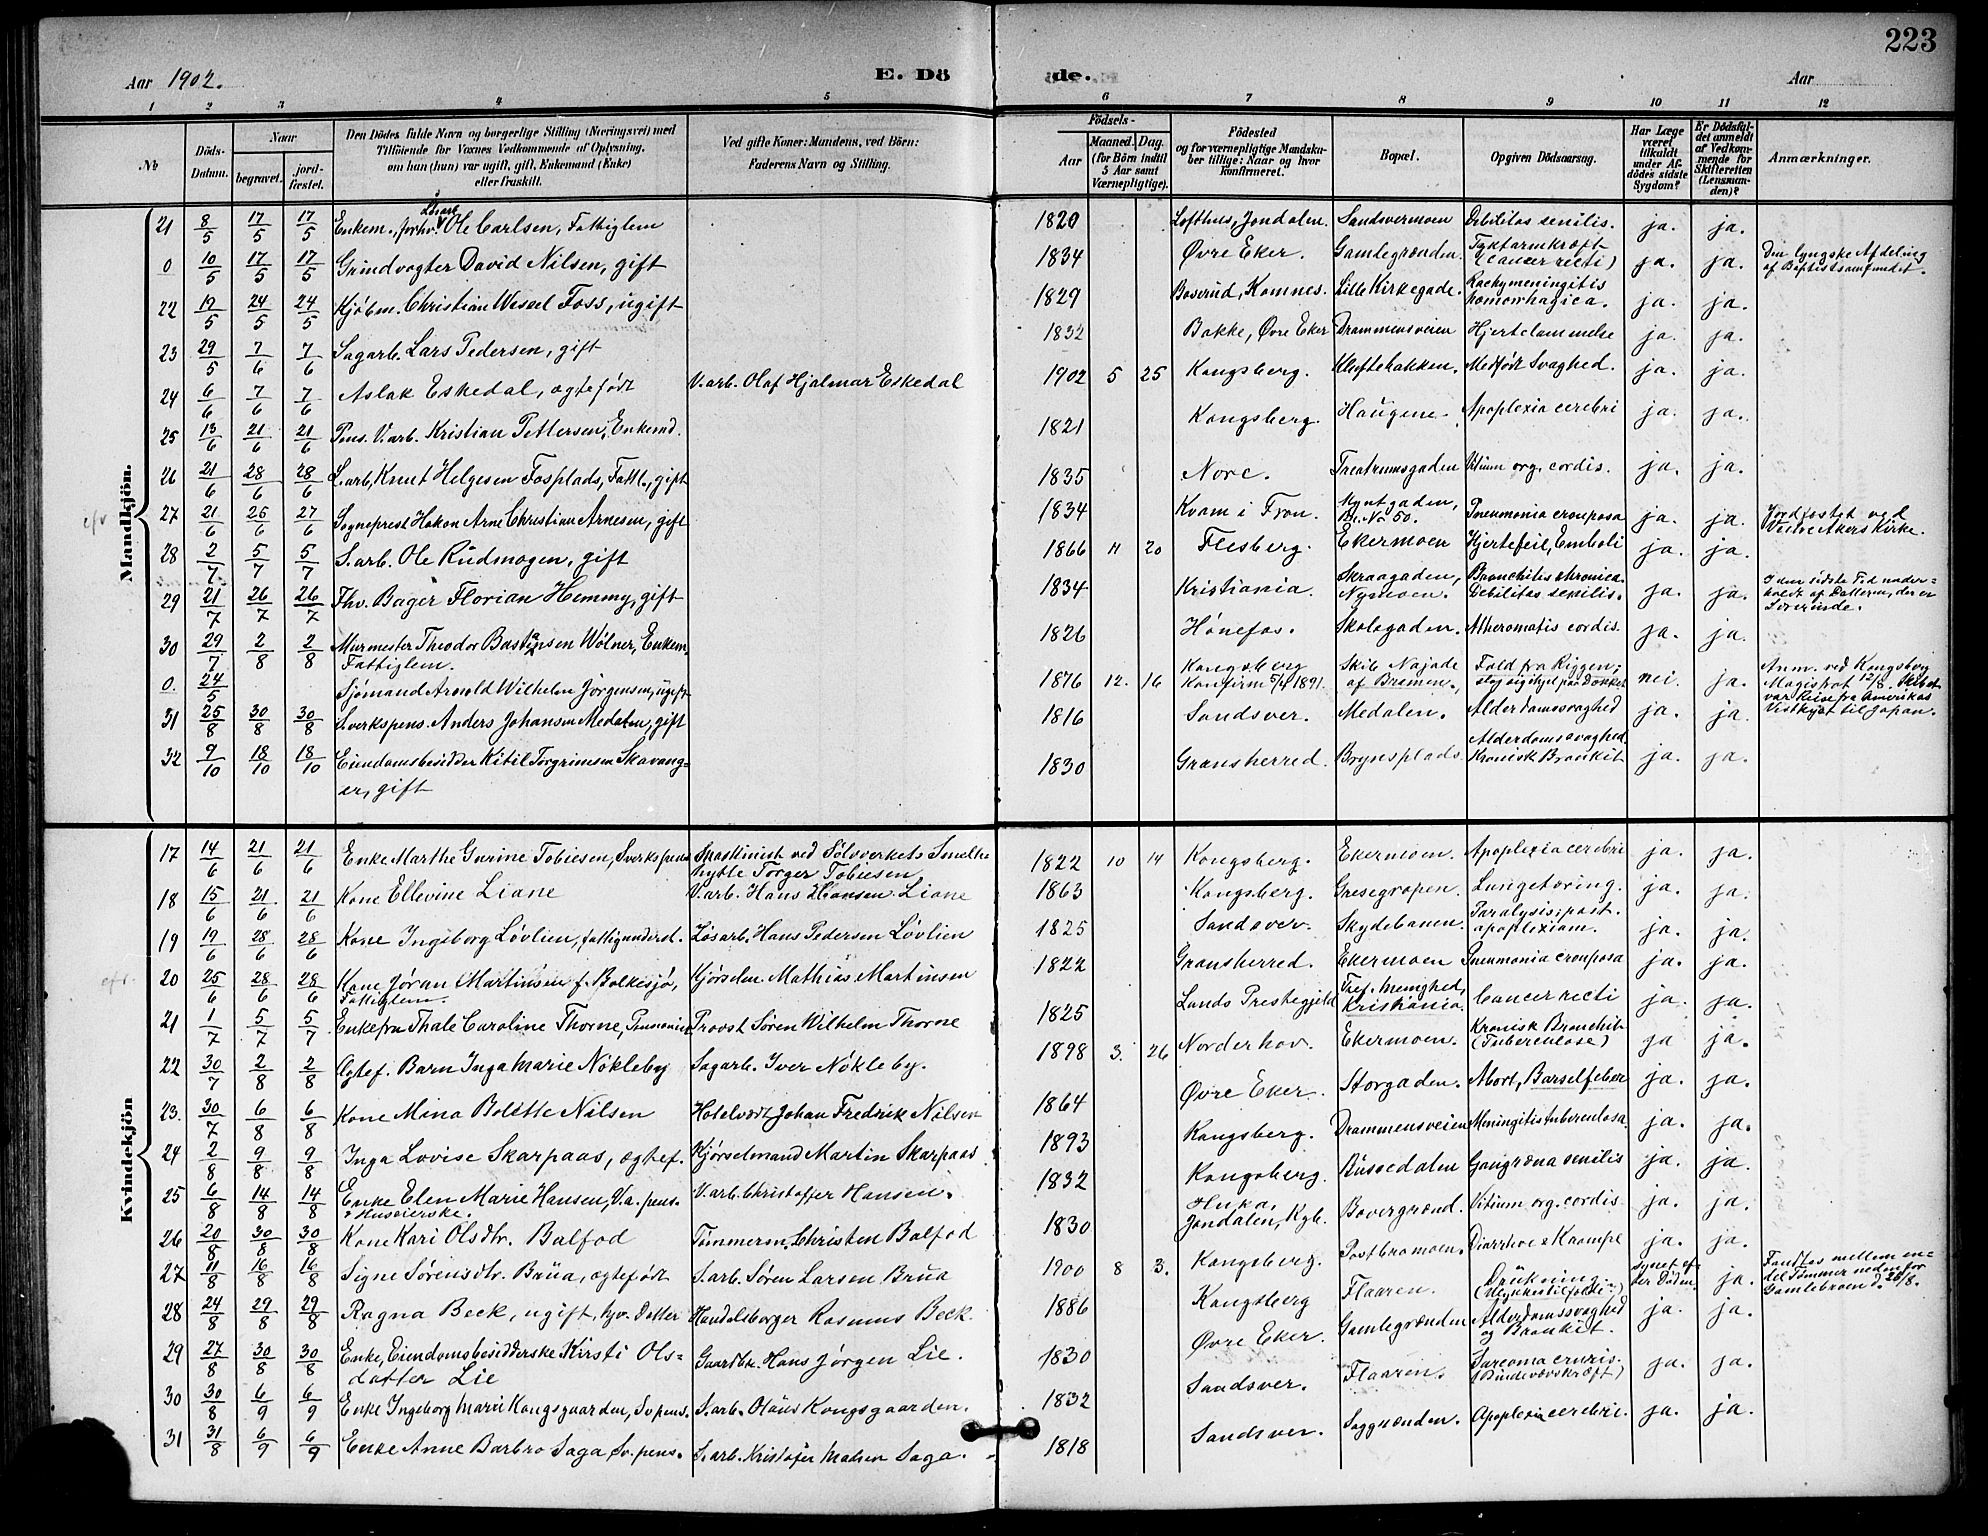 223
Aar 1902. E. Dö de. Aar
1 2 3 4 5 6 7 8 9 10 11 12
№ Döds-Datum. Naar begravet. jordfæstet. Den Dödes fulde Navn og borgerlige Stilling (Næringsvei) med Tilföiende for Voxnes Vedkommende af Oplysning, om han (hun) var ugift, gift, Enkemand (Enke) eller fraskilt. Ved gifte Koner: Mandens, ved Börn: Faderens Navn og Stilling. Födsels- Aar Maaned. Dag. (for Börn indtil 5 Aar samt Værnepligtige). Födested og for værnepligtige Mandskaber tillige: Naar og hvor konfirmeret. Bopæl. Opgiven Dödsaarsag. Har Læge været tilkaldt under Afdödes sidste Sygdom? Er Dödsfaldet anmeldt af Vedkommende for Skifteretten (Lensmanden)? Anmærkninger.
Mandkjön.
21 8/5 17/5 17/5 Enkem., forhv. Lösarb. Ole Carlsen, Fattiglem 1820 Lofthus, Jondalen. Sandsvermoen Debilitas senilis. ja. ja.
0 10/5 17/5 17/5 Grindvogter David Nilsen, gift 1834 Øvre Eker. Gamlegrænden. Tyktarmkræft (Cancer recti) ja. ja. Den lyngske Afdeling af Baptistsamfundet.
22 19/5 24/5 24/5 Kjøbm. Christian Wessel Foss, ugift 1829 Boserud, Komnes. Lille Kirkegade. Pachymeningitis hæmorrhagica. ja. ja.
23 29/5 7/6 7/6 Sagarb. Lars Pedersen, gift 1832 Bakke, Øvre Eker Drammensveien Hjertelammelse ja. ja.
24 6/6 7/6 7/6 Aslak Eskedal, ægtefødt V.arb. Olaf Hjalmar Eskedal 1902 5 25 Kongsberg. Kløftebakken. Medfødt Svaghed. ja. ja.
25 13/6 21/6 21/6 Pens. V.arb. Kristian Pettersen, Enkemd. 1821 Kongsberg. Haugene. Apoplexia cerebri ja. ja.
26 21/6 28/6 28/6 S.arb, Knut Helgesen Fosplads, Fattl., gift 1835 Nore. Treatrumsgaden Vitium org. cordis. ja. ja.
27 21/6 26/6 27/6 Sogneprest Hakon Arne Christian Arnesen, gift 1834 Kvam i Fron. Myntgaden, Br. No 50. Pneumonia crouposa ja. ja. Jordfæstet ved Vestre Akers Kirke.
28 2/7 5/7 5/7 S.arb. Ole Rudmogen, gift 1866 11 20 Flesberg. Ekermoen Hjertefeil, Emboli ja. ja.
29 21/7 26/7 26/7 Fhv. Bager Florian Hemmy, gift 1834 Kristiania. Skraagaden, Nymoen. Bronchitis chronica. Debilitas senilis. ja. ja. I den sidste Tid underholdt af Datteren, der er Lærerinde.
30 29/7 2/8 2/8 Murmester Theodor Bastiansen Wölner, Enkem. Fattiglem. 1826 Hønefos. Skolegaden. Atheromatis cordis. ja. ja.
0. 24/5 Sjømand Arnold Wilhelm Jørgensen, ugift 1876 12. 16 Kongsberg Konfirm 5/4 1891. Skib Najade af Bremen. Fald fra Riggen; slog sig ihjel paa Dækket nei. ja. Anm. ved Kongsberg Magistrat 12/8. Skibet var Reise fra Amerikas Vestkyst til Japan.
31 25/8 30/8 30/8 S.verkspens. Anders Johansen Medalen, gift 1816 Sandsver. Medalen. Alderdomssvaghed ja. ja.
32 9/10 18/10 18/10 Eiendomsbesidder Kitil Torgrimsen Skavanger, gift 1830 Gransherred. Brynsplads Alderdomssvaghed. Kronisk Bronkit ja. ja.
Kvindekjön
17 14/6 21/6 21/6 Enke Marthe Gurine Tobiesen, S.verkspens Maskinist ved Sölvverkets Smeltehytte Torger Tobiesen 1822 10 14 Kongsberg. Ekermoen. Apoplexia cerebri ja. ja.
18 15/6 21/6 21/6 Kone Ellevine Liane V.arb. Hans Hansen Liane 1863 Kongsberg. Gresegropen. Lungetæring. ja. ja.
19 19/6 28/6 28/6 Kone Ingeborg Lövlien, fattigunderst. Løsarb. Hans Pedersen Lövlien 1825 Sandsver. Skydebanen. Paralysis; post. apoplexiam. ja. ja.
20 25/6 28/6 28/6 Kone Jøran Martinsen f. Bolkesjø, Fattiglem. Kjørselm. Mathias Martinsen 1822 Gransherred. Ekermoen Pneumonia crouposa ja. ja.
21 1/7 5/7 5/7 Enkefru Thale Caroline Thorne, Pensionist Provst Søren Wilhelm Thorne 1825 Lands Prestegjeld Tref. Menighed, Kristiania. Cancer recti ja. ja.
22 30/7 2/8 2/8 Ægtef. Barn Inga Marie Nökleby Sagarb. Iver Nökleby. 1898 3. 26 Norderhov. Ekermoen. Kronisk Bronchit (Tuberculose) ja ja.
23. 30/7 6/8 6/8 Kone Mina Bolette Nilsen Hotelvært Johan Fredrik Nilsen 1864 Øvre Eker. Storgaden. Abort, Barselfeber ja. ja.
24 2/8 9/8 9/8 Inga Lovise Skarpaas, ægtef. Kjørselmand Martin Skarpaas 1893 Kongsberg. Drammensveien Meningitis tuberculosa. ja. ja.
25 6/8 14/8 14/8 Enke Elen Marie Hansen, V.a. pens. & Huseierske. V.arb. Christoffer Hansen. 1832 Kongsberg. Bussedalen Gangræna senilis ja. ja.
26 20/8 30/8 30/8 Kone Kari Olsdtr. Balfod Tømmerm. Christen Balfod 1830 Jondalen, Kgb. Bævergrænd. Vitium org. cordis ja. ja.
27 11/8 16/8 16/8 Signe Sørensdtr. Brua, ægtefødt S.arb. Søren Larsen Brua 1900 8 3. Kongsberg. Postbromoen. Diarrhoe & Krampe ja. ja.
28 24/8 29/8 29/8 Ragna Beck, ugift, hjv. Datter Handelsborger Rasmus Beck. 1886 Kongsberg Flaaren. Drukning (Ulykkestilfælde.) synet efter Døden ja. Fandtes mellem endel Tømmer nedenfor Gamlebroen d. 26/8.
29 27/8 30/8 30/8 Enke, Eiendomsbesidderske Kirsti Olsdatter Lie Gaardbr. Hans Jørgen Lie. 1830 Øvre Eker. Gamlegrænden Alderdomssvaghed og Bronkit. ja. ja.
30 30/8 6/9 6/9 Enke Ingeborg Marie Kongsgaarden, S.v.pens. S.arb. Olaus Kongsgaarden. 1832 Sandsver. Flaaren. Sarcoma cruris. (Bindevævskræft) ja. ja.
31 31/8 6/9 6/9 Enke Anne Barbro Saga S.v. pens. S.arb. Kristofer Madsen Saga. 1818 Sandsver. Saggrænden. Apoplexia cerebri. ja. ja.